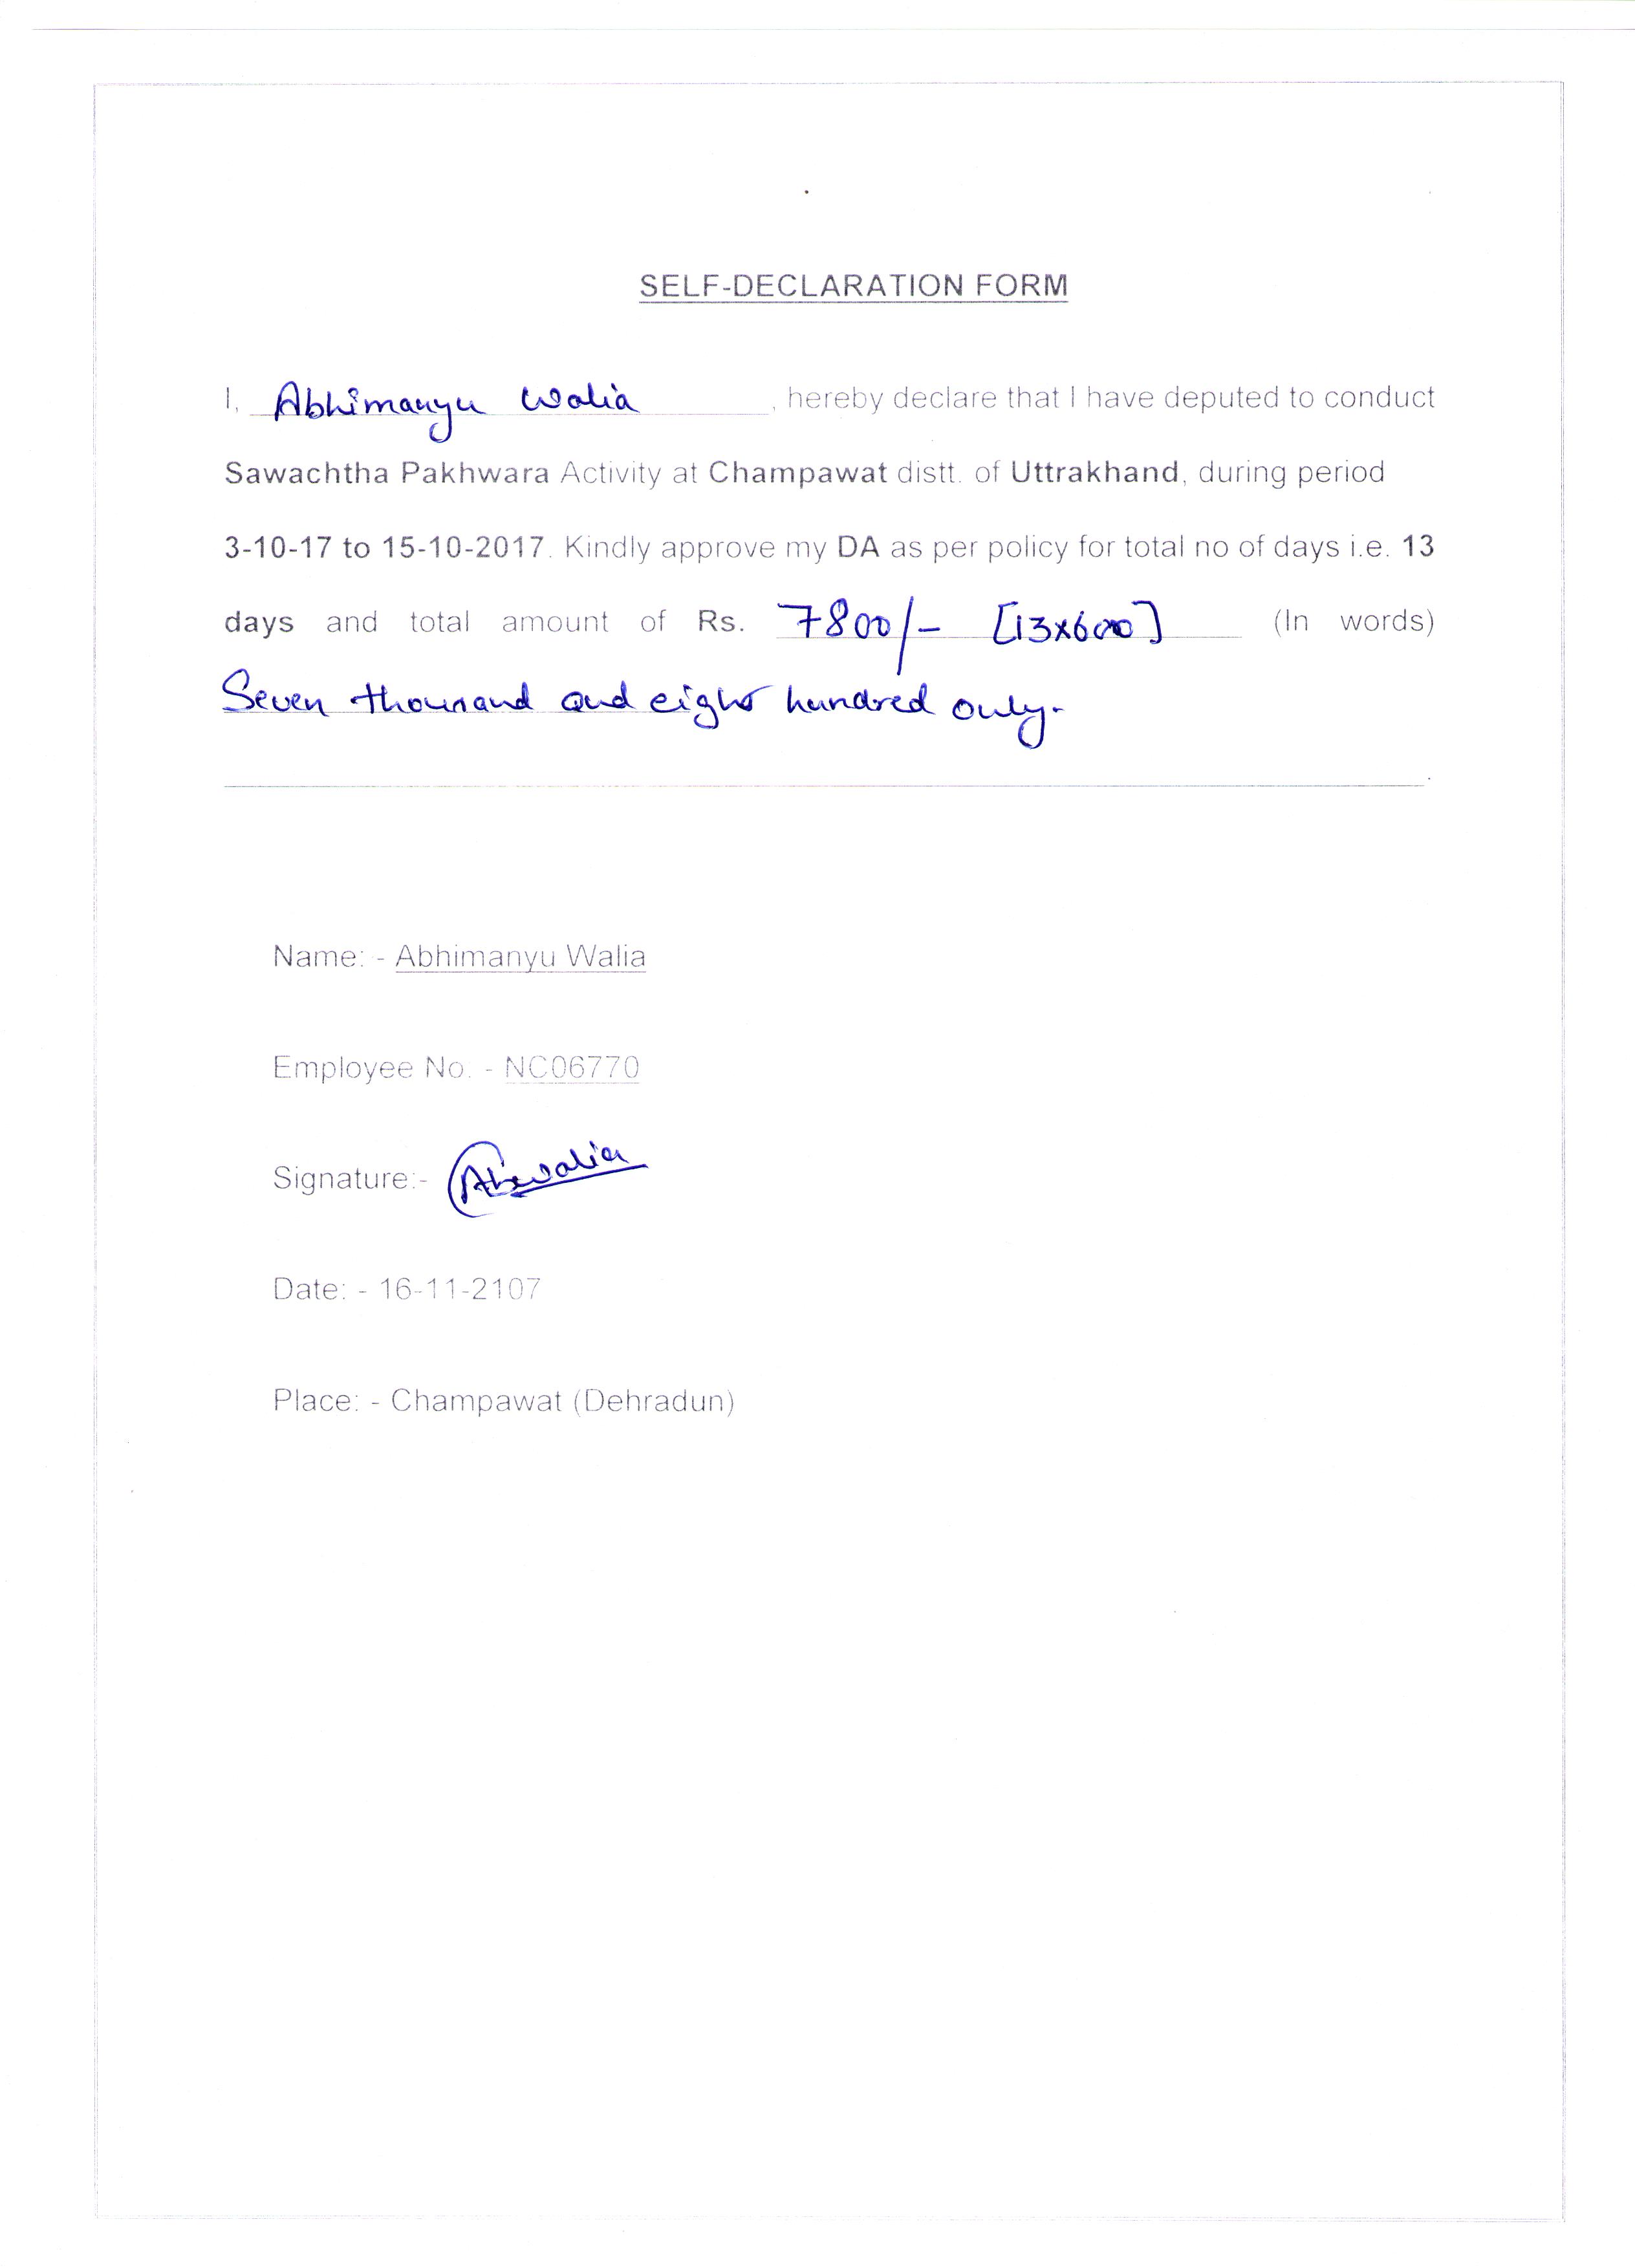 SELF-DECLARATION FORM
I, Abhimanyu Walia, hereby declare that I have deputed to conduct
Sawachtha Pakhwara Activity at Champawat distt. of Uttrakhand, during period
3-10-17 to 15-10-2017. Kindly approve my DA as per policy for total no of days i.e. 13
days and total amount of Rs. 7800/- [13x600] (In words)
Seven thousand and eight hundred only.
Name: - Abhimanyu Walia
Employee No. - NC06770
Signature:- Abwalia
Date: - 16-11-2107
Place: - Champawat (Dehradun)